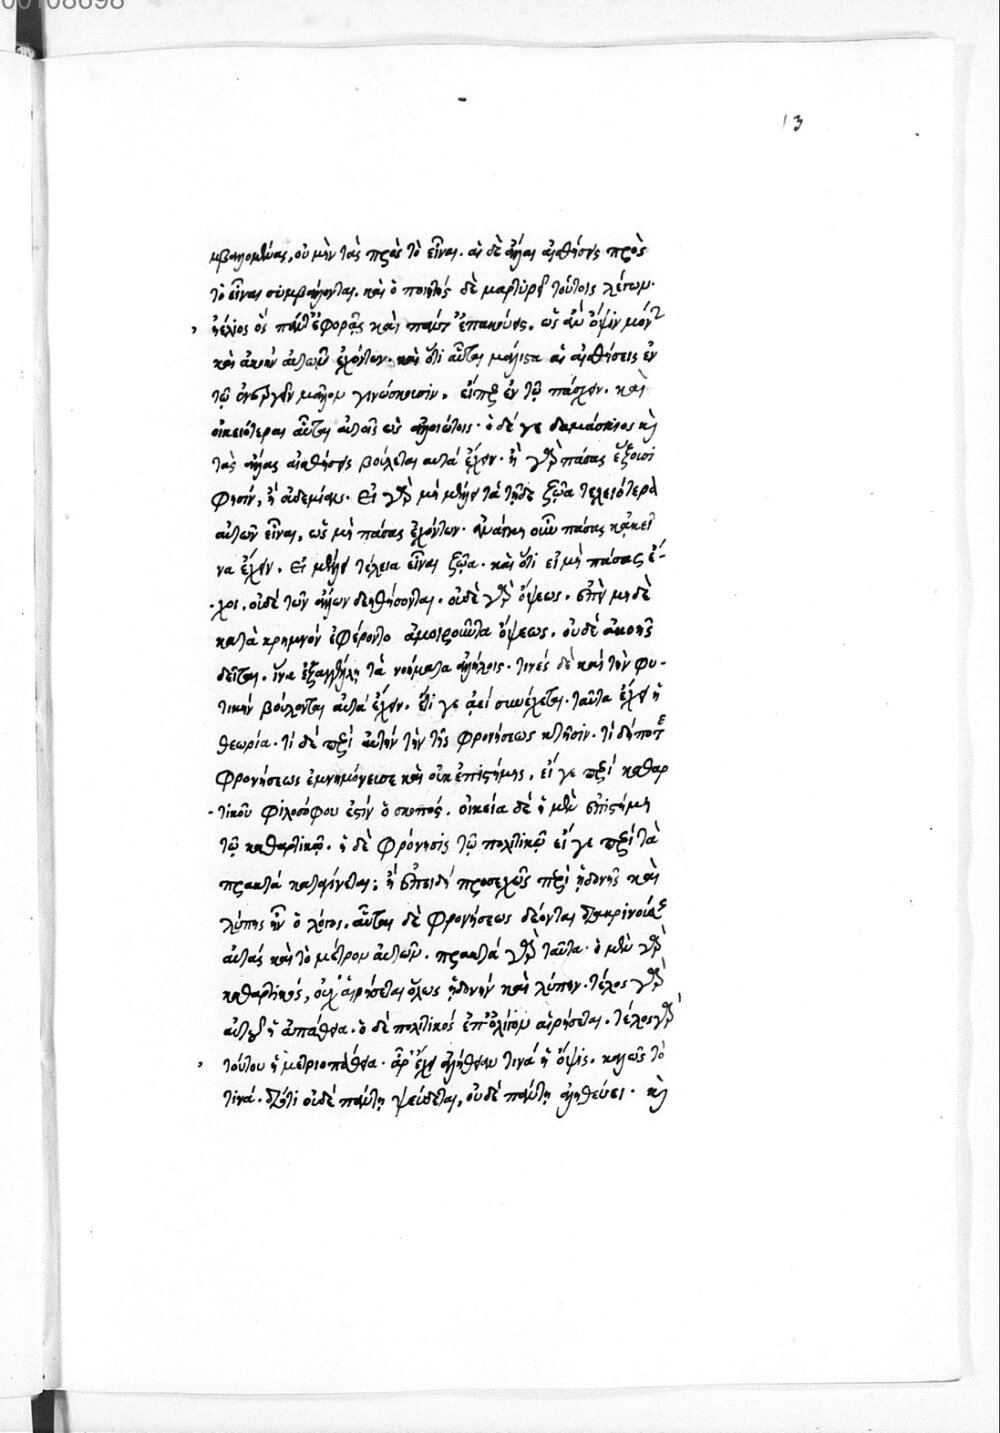 00108698
13
μβαλλομένας, οὐ μὴν τὰς πρὸς τὸ εἶναι. αἱ δὲ ἄλλαι αἰσθήσεις πρὸς
τὸ εἶναι συμβάλλονται. καὶ ὁ ποιητὴς δὲ μαρτυρεῖ τούτοις λέγων·
ἠέλιος ὃς πάντ' ἐφορᾷς καὶ πάντ' ἐπακούεις. ὡς ἂν ὄψιν μόνην
καὶ ἀκοὴν αὐτῶν ἐχόντων. καὶ ὅτι αὗται μάλιστα αἱ αἰσθήσεις ἐν
τῷ ἐνεργεῖν μᾶλλον γινώσκουσιν, εἴπερ ἐν τῷ πάσχειν. καὶ
οἰκειότεραι αὗται αὐτοῖς ὡς ἀλλοιώτοις. ὁ δέ γε δαμάσκιος καὶ
τὰς ἄλλας αἰσθήσεις βούλεται αὐτὰ ἔχειν. ἢ γὰρ πάσας ἕξουσι
φησὶν, ἢ οὐδεμίαν. Εἰ γὰρ μὴ μέλλει τὰ τῇδε ζῷα τελειότερα
αὐτῶν εἶναι, ὡς μὴ πάσας ἐχόντων. ἀνάγκη οὖν πάσας κἀκεῖ
να ἔχειν. Εἰ μέλλει τέλεια εἶναι ζῷα. καὶ ὅτι εἰ μὴ πάσας ἔ-
χοι, οὐδὲ τῶν ἄλλων δεηθήσονται. οὐδὲ γὰρ ὄψεως. ἐπεὶ μηδὲ
κατὰ κρημνὸν ἐφέροντο ἀμοιροῦντα ὄψεως. οὐδὲ ἀκοῆς
δεῖται. ἵνα ἐξαγγείλῃ τὰ νοήματα ἀλλήλοις. τινὲς δὲ καὶ τὴν φυ-
τικὴν βούλονται αὐτὰ ἔχειν. ἔτι γε ἀεὶ συνέχεται. ταῦτα ἔχει ἡ
θεωρία. τί δὲ περὶ αὐτὴν τὴν τῆς φρονήσεως κτῆσιν. τί δήποτε
φρονήσεως ἐμνημόνευσε καὶ οὐκ ἐπιστήμης, εἴ γε περὶ καθαρ
τικοῦ φιλοσόφου ἐστὶν ὁ σκοπός. οἰκεία δὲ ἡ μὲν ἐπιστήμη
τῷ καθαρτικῷ. ἡ δὲ φρόνησις τῷ πολιτικῷ εἴ γε περὶ τὰ
πρακτὰ καταγίνεται; ἢ ἐπειδὴ προσεχῶς περὶ ἡδονῆς καὶ
λύπης ἦν ὁ λόγος. αὗται δὲ φρονήσεως δέονται διακρινούσης
αὐτὰς καὶ τὸ μέτρον αὐτῶν. πρακτὰ γὰρ ταῦτα. ὁ μὲν γὰρ
καθαρτικὸς, οὐχ αἱρήσεται ὅλως ἡδονὴν καὶ λύπην. τέλος γὰρ
αὐτοῦ ἡ ἀπάθεια. ὁ δὲ πολιτικὸς ἐπ' ὀλίγον αἱρήσεται. τέλος γὰρ
τούτου ἡ μετριοπάθεια. ἆρ' ἔχει ἀλήθειαν τινὰ ἡ ὄψις. καλῶς τὸ
τινά. διότι οὐδὲ πάντῃ ψεύδεται, οὐδὲ πάντῃ ἀληθεύει. καὶ